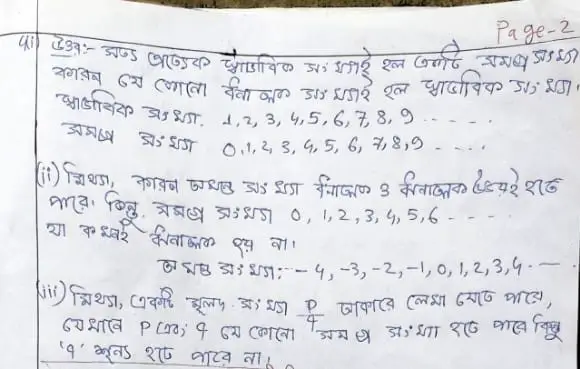 Page-2
4i) উত্তর:- সত্য প্রত্যেক স্বাভাবিক সংখ্যাই হল একটি সমগ্র সংখ্যা
কারন যে কোনো ধনাত্মক সংখ্যাই হল স্বাভাবিক সংখ্যা।
স্বাভাবিক সংখ্যা. 1, 2, 3, 4, 5, 6, 7, 8, 9 - - - - -
সমগ্র সংখ্যা 0, 1, 2, 3, 4, 5, 6, 7, 8, 9 - - - -
(ii) মিথ্যা, কারন অখন্ড সংখ্যা ধনাত্মক ও ঋনাত্মক উভয়ই হতে
পারে। কিন্তু, সমগ্র সংখ্যা 0, 1, 2, 3, 4, 5, 6 - - - -
যা কখনই ঋনাত্মক হয় না।
অখন্ড সংখ্যা:- - 4, -3, -2, -1, 0, 1, 2, 3, 4 - - -
(iii) মিথ্যা, একটি মূলদ সংখ্যা p/q আকারে লেখা যেতে পারে,
যেখানে P এবং q যে কোনো সমগ্র সংখ্যা হতে পারে কিন্তু
'q' শূন্য হতে পারে না।